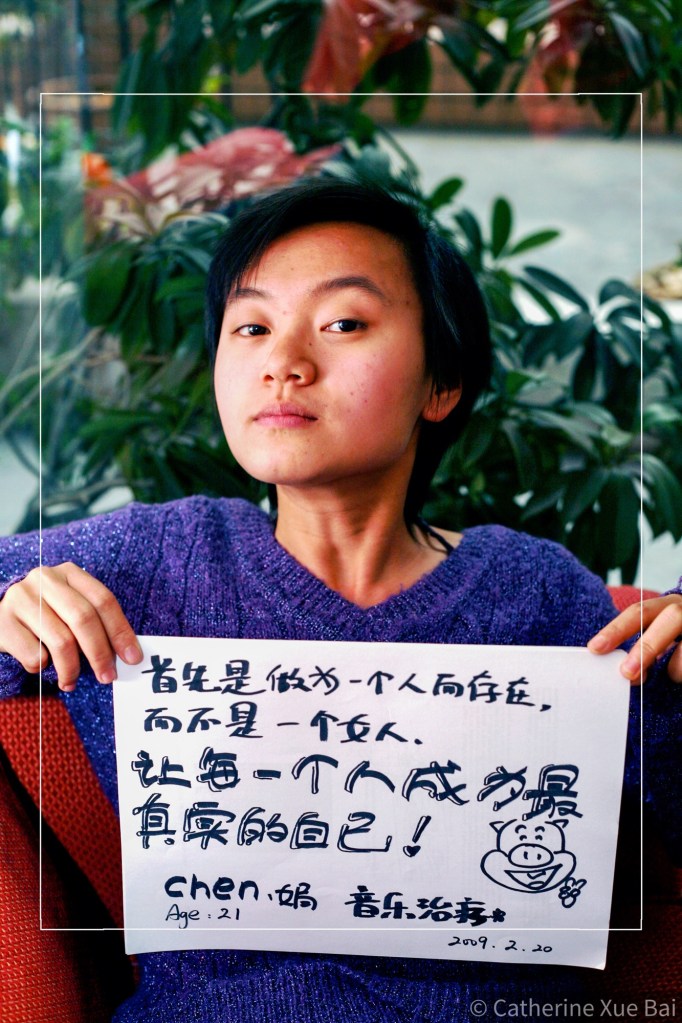 首先是做为一个人而存在,
而不是一个女人.
让每一个人成为最
真实的自己!
chen.娟 音乐治疗
Age : 21
2009. 2. 20
© Catherine Xue Bai